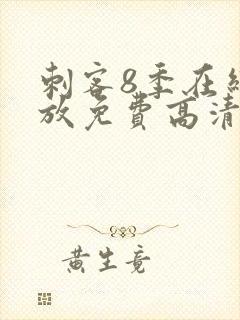 刺客8季在
放免费高清
黄生竟